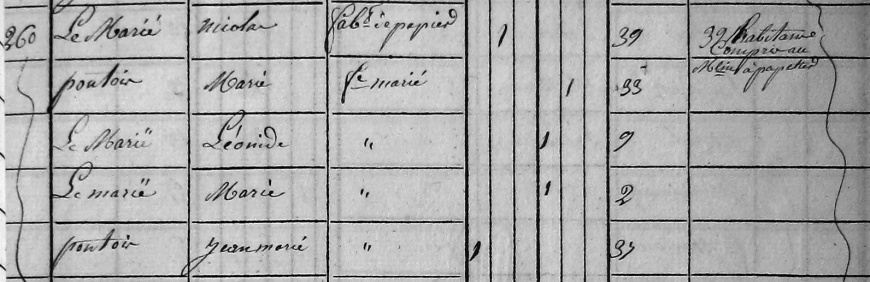 260 Le Marié nicolas fabt de papier 1 39 39 habitans
Compris au
Mlin à papetier
pontoir Marie fe marié 1 33
Le Marië Léonide " 1 9
Le marië Marie " 1 2
pontoir jean marie " 1 37